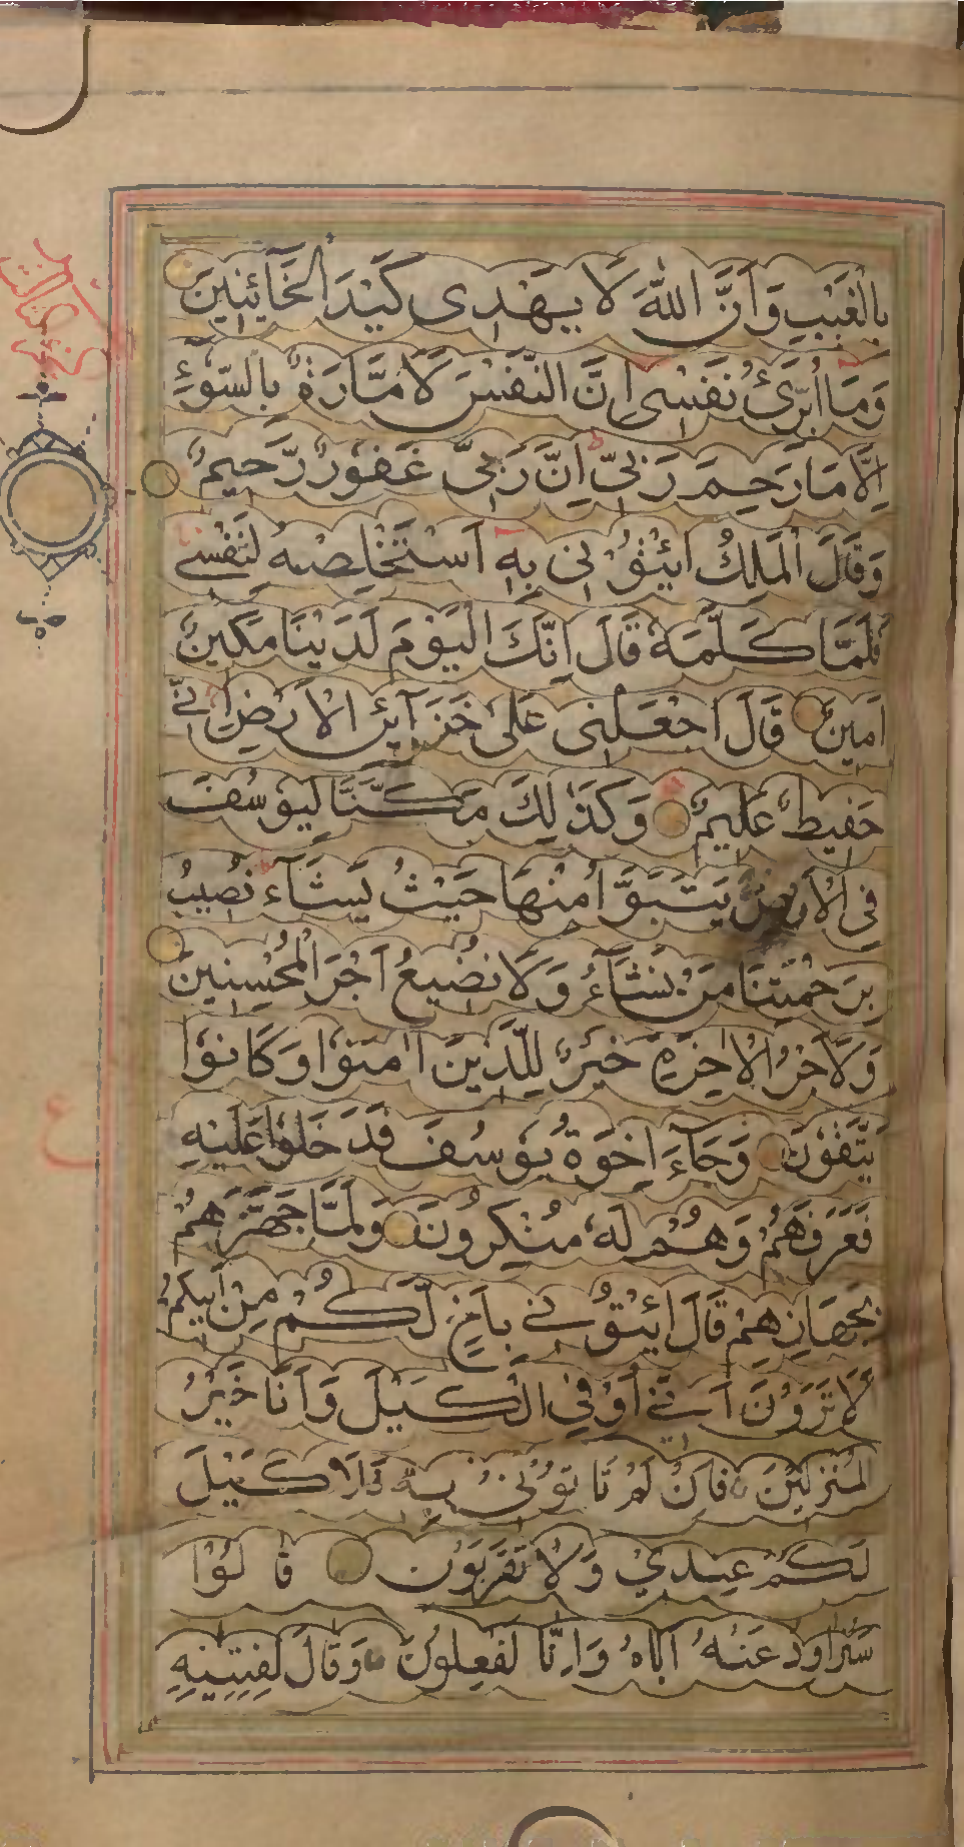 بِالْغَيْبِ وَاَنَّ اللّٰهَ لَا يَهْدِى كَيْدَ الْخَآئِنِيْنَ
وَمَا اُبَرِّئُ نَفْسِى اِنَّ النَّفْسَ لَاَمَّارَةٌ بِالسُّوْٓءِ
اِلَّا مَا رَحِمَ رَبِّىْ اِنَّ رَبِّىْ غَفُوْرٌ رَّحِيْمٌ
وَقَالَ الْمَلِكُ ائْتُوْنِى بِهٖ اَسْتَخْلِصْهُ لِنَفْسِى
فَلَمَّا كَلَّمَهٗ قَالَ اِنَّكَ الْيَوْمَ لَدَيْنَا مَكِيْنٌ
اَمِيْنٌ قَالَ اجْعَلْنِى عَلٰى خَزَآئِنِ الْاَرْضِ اِنِّى
حَفِيْظٌ عَلِيْمٌ وَكَذٰلِكَ مَكَّنَّا لِيُوْسُفَ
فِى الْاَرْضِ يَتَبَوَّاُ مِنْهَا حَيْثُ يَشَآءُ نُصِيْبُ
بِرَحْمَتِنَا مَنْ نَّشَآءُ وَلَا نُضِيْعُ اَجْرَ الْمُحْسِنِيْنَ
وَلَاَجْرُ الْاٰخِرَةِ خَيْرٌ لِّلَّذِيْنَ اٰمَنُوْا وَكَانُوْا
يَتَّقُوْنَ وَجَآءَ اِخْوَةُ يُوْسُفَ فَدَخَلُوْا عَلَيْهِ
فَعَرَفَهُمْ وَهُمْ لَهٗ مُنْكِرُوْنَ وَلَمَّا جَهَّزَهُمْ
بِجَهَازِهِمْ قَالَ ائْتُوْنِى بِاَخٍ لَّكُمْ مِنْ اَبِيْكُمْ
اَلَا تَرَوْنَ اَنِّى اُوْفِى الْكَيْلَ وَاَنَا خَيْرُ
الْمُنْزِلِيْنَ فَاِنْ لَمْ تَاْتُوْنِى بِهٖ فَلَا كَيْلَ
لَكُمْ عِنْدِيْ وَلَا تَقْرَبُوْنِ قَالُوْا
سَنُرَاوِدُ عَنْهُ اَبَاهُ وَاِنَّا لَفٰعِلُوْنَ وَقَالَ لِفِتْيٰنِهِ
ع